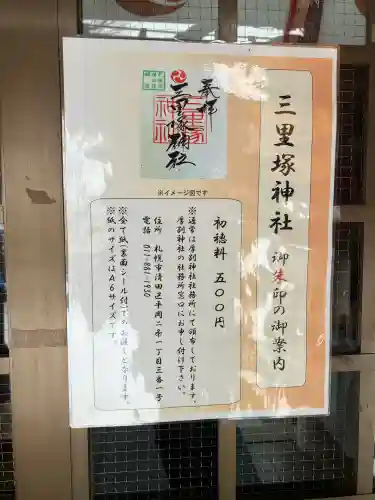 三里塚神社 御朱印の御案内
奉拝
三里塚神社
三里塚
神社
※イメージ図です
初穂料 五〇〇円
※通常は厚別神社社務所にて頒布しております。
厚別神社の社務所窓口にお申し付け下さい。
住所 札幌市清田区平岡二条一丁目三番一号
電話 011-881-1930
※全て紙(裏面シール付)でのお渡しとなります。
※紙のサイズはA6サイズです。